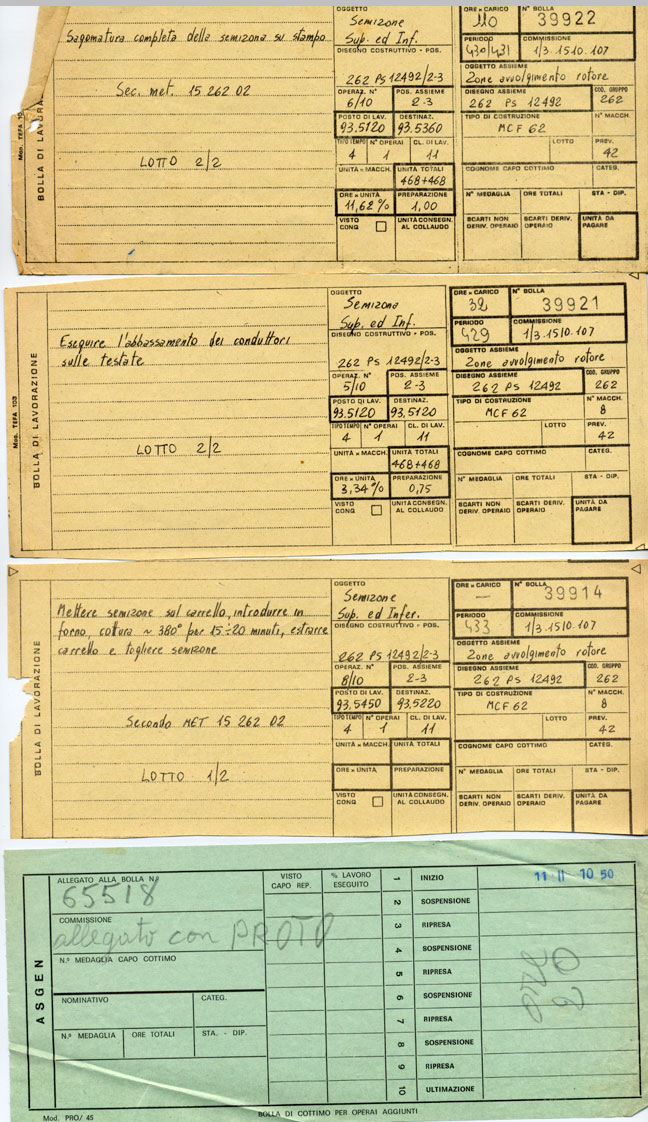 Mod. TEFA 10
BOLLA DI LAVORA
Sagomatura completa della semizona su stampo
Sec. met. 15 262 02
LOTTO 2/2
OGGETTO
Semizone
Sup. ed Inf.
DISEGNO COSTRUTTIVO - POS.
262 PS 12492/2-3
OPERAZ. N°
6/10
POS. ASSIEME
2-3
POSTO DI LAV.
93.5120
DESTINAZ.
93.5360
TIPO TEMPO
4
N° OPERAI
1
CL. DI LAV.
11
UNITÀ × MACCH.
UNITÀ TOTALI
468+468
ORE × UNITÀ
11,62 %
PREPARAZIONE
1,00
VISTO
CONQ
UNITÀ CONSEGN.
AL COLLAUDO
ORE × CARICO
110
N° BOLLA
39922
PERIODO
430/431
COMMISSIONE
1/3.1510.107
OGGETTO ASSIEME
Zone avvolgimento rotore
DISEGNO ASSIEME
262 PS 12492
COD. GRUPPO
262
TIPO DI COSTRUZIONE
MCF 62
N° MACCH.
LOTTO
PREV.
42
COGNOME CAPO COTTIMO
CATEG.
N° MEDAGLIA
ORE TOTALI
STA - DIP.
SCARTI NON
DERIV. OPERAIO
SCARTI DERIV.
OPERAIO
UNITÀ DA
PAGARE
Mod. TEFA 103
BOLLA DI LAVORAZIONE
Eseguire l'abbassamento dei conduttori
sulle testate
LOTTO 2/2
OGGETTO
Semizona
Sup. ed Inf.
DISEGNO COSTRUTTIVO - POS.
262 PS 12492/2-3
OPERAZ. N°
5/10
POS. ASSIEME
2-3
POSTO DI LAV.
93.5120
DESTINAZ.
93.5120
TIPO TEMPO
4
N° OPERAI
1
CL. DI LAV.
11
UNITÀ × MACCH.
UNITÀ TOTALI
468+468
ORE × UNITÀ
3,34 %
PREPARAZIONE
0,75
VISTO
CONQ
UNITÀ CONSEGN.
AL COLLAUDO
ORE × CARICO
32
N° BOLLA
39921
PERIODO
429
COMMISSIONE
1/3.1510.107
OGGETTO ASSIEME
Zone avvolgimento rotore
DISEGNO ASSIEME
262 PS 12492
COD. GRUPPO
262
TIPO DI COSTRUZIONE
MCF 62
N° MACCH.
8
LOTTO
PREV.
42
COGNOME CAPO COTTIMO
CATEG.
N° MEDAGLIA
ORE TOTALI
STA - DIP.
SCARTI NON
DERIV. OPERAIO
SCARTI DERIV.
OPERAIO
UNITÀ DA
PAGARE
BOLLA DI LAVORAZIONE
Mettere semizone sul carrello, introdurre in
forno, cottura ~ 380° per 15÷20 minuti, estrarre
carrello e togliere semizone
Secondo MET 15 262 02
LOTTO 1/2
OGGETTO
Semizone
Sup. ed Infer.
DISEGNO COSTRUTTIVO - POS.
262 PS 12492/2-3
OPERAZ. N°
8/10
POS. ASSIEME
2-3
POSTO DI LAV.
93.5450
DESTINAZ.
93.5220
TIPO TEMPO
4
N° OPERAI
1
CL. DI LAV.
11
UNITÀ × MACCH.
UNITÀ TOTALI
ORE × UNITÀ
PREPARAZIONE
VISTO
CONQ
UNITÀ CONSEGN.
AL COLLAUDO
ORE × CARICO
—
N° BOLLA
39914
PERIODO
433
COMMISSIONE
1/3.1510.107
OGGETTO ASSIEME
Zone avvolgimento rotore
DISEGNO ASSIEME
262 PS 12492
COD. GRUPPO
262
TIPO DI COSTRUZIONE
MCF 62
N° MACCH.
8
LOTTO
PREV.
42
COGNOME CAPO COTTIMO
CATEG.
N° MEDAGLIA
ORE TOTALI
STA - DIP.
SCARTI NON
DERIV. OPERAIO
SCARTI DERIV.
OPERAIO
UNITÀ DA
PAGARE
ASGEN
ALLEGATO ALLA BOLLA N.º
65518
COMMISSIONE
allegato con PROTO
N.º MEDAGLIA CAPO COTTIMO
NOMINATIVO
CATEG.
N.º MEDAGLIA
ORE TOTALI
STA. - DIP.
VISTO
CAPO REP.
% LAVORO
ESEGUITO
1 INIZIO 11 II 10 50
2 SOSPENSIONE
3 RIPRESA
4 SOSPENSIONE
5 RIPRESA
6 SOSPENSIONE
7 RIPRESA
8 SOSPENSIONE
9 RIPRESA
10 ULTIMAZIONE
Mod. PRO/ 45
BOLLA DI COTTIMO PER OPERAI AGGIUNTI